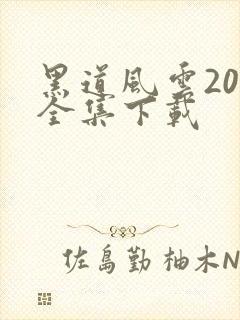 黑道风云20
全集下载
佐島勤 柚木N